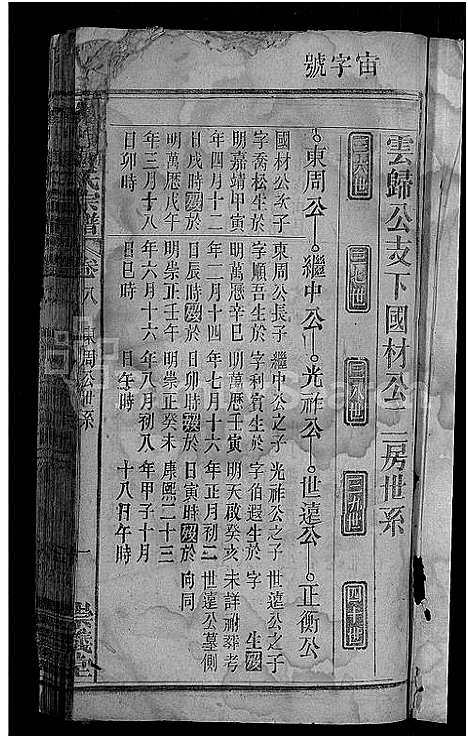 宙字號
雲歸公支下國材公二房世系
三六世
三七世
三八世
三九世
四十世
東周公
繼中公
光祚公
世遠公
正衡公
國材公次子
字喬松生於
明嘉靖甲寅
年四月十二
日戌時歿於
明萬曆戊午
年三月十八
日卯時
東周公長子
字順吾生於
明萬曆辛巳
年二月十四
日辰時歿於
明崇正壬午
年六月十六
日巳時
繼中公之子
字利賓生於
明萬曆壬寅
年七月十六
日卯時歿於
明崇正癸未
年八月初八
日午時
光祚公之子
字伯遐生於
明天啟癸亥
年正月初二
日寅時歿於
康熙二十三
年甲子十月
十八日午時
世遠公之子
字 生歿
未詳祔葬考
世遠公墓側
向同
氏宗譜
卷八
東周公世系
一
崇義堂